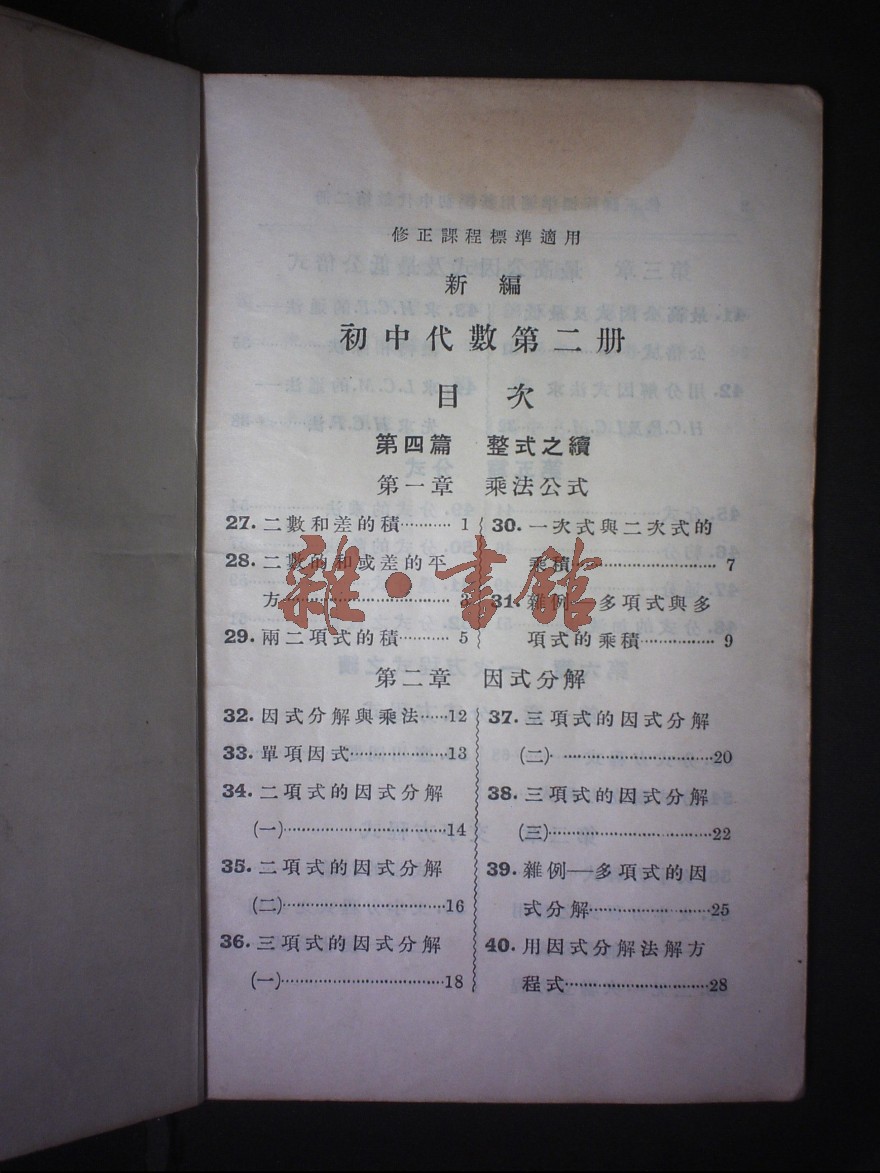 修正課程標準適用
新編
初中代數第二册
目次
第四篇 整式之續
第一章 乘法公式
27. 二數和差的積………… 1
28. 二數的和或差的平
方…………………………… 3
29. 兩二項式的積……… 5
30. 一次式與二次式的
乘積………………………… 7
31. 雜例——多項式與多
項式的乘積…………… 9
第二章 因式分解
32. 因式分解與乘法……12
33. 單項因式………………13
34. 二項式的因式分解
(一)…………………………14
35. 二項式的因式分解
(二)…………………………16
36. 三項式的因式分解
(一)…………………………18
37. 三項式的因式分解
(二)…………………………20
38. 三項式的因式分解
(三)…………………………22
39. 雜例——多項式的因
式分解……………………25
40. 用因式分解法解方
程式………………………28
雜·書館